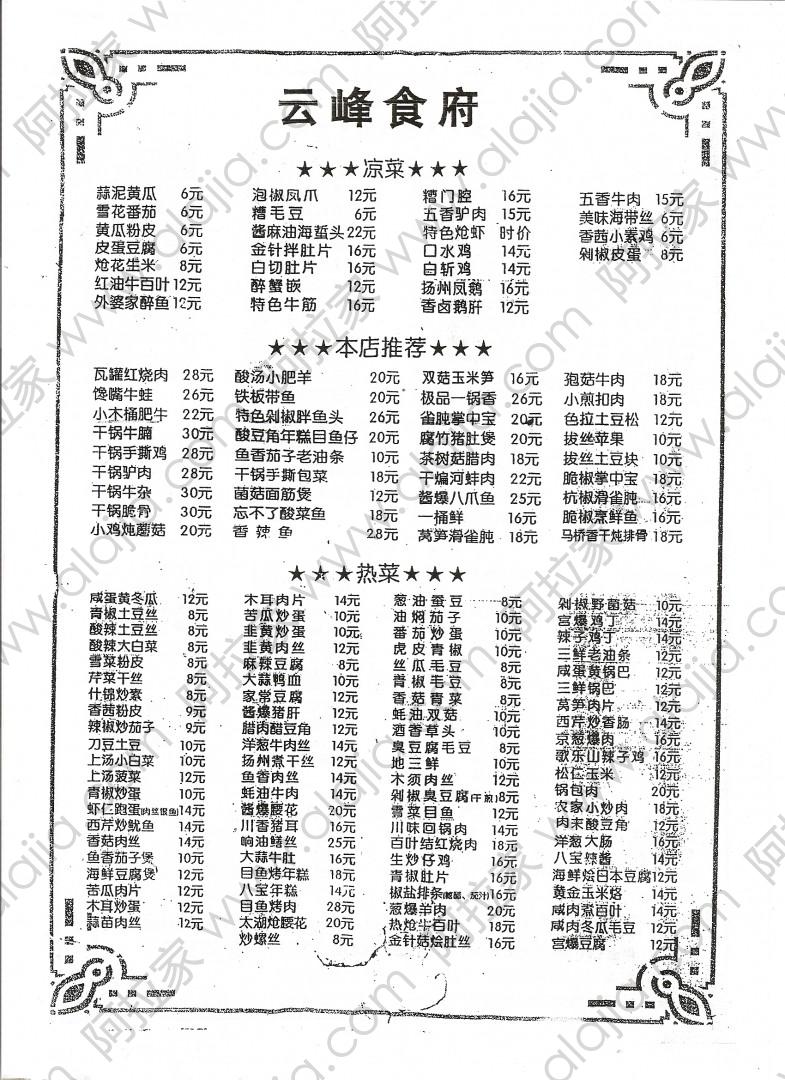 云峰食府
★★★凉菜★★★
蒜泥黄瓜 6元
雪花番茄 6元
黄瓜粉皮 6元
皮蛋豆腐 6元
炝花生米 8元
红油牛百叶 12元
外婆家醉鱼 12元
泡椒凤爪 12元
糟毛豆 6元
酱麻油海蜇头 22元
金针拌肚片 16元
白切肚片 16元
醉蟹嵌 12元
特色牛筋 16元
糟门腔 16元
五香驴肉 15元
特色炝虾 时价
口水鸡 14元
白斩鸡 14元
扬州凤鹅 16元
香卤鹅肝 12元
五香牛肉 15元
美味海带丝 6元
香茜小素鸡 6元
剁椒皮蛋 8元
★★★本店推荐★★★
瓦罐红烧肉 28元
馋嘴牛蛙 26元
小木桶肥牛 22元
干锅牛腩 30元
干锅手撕鸡 28元
干锅驴肉 28元
干锅牛杂 30元
干锅脆骨 30元
小鸡炖蘑菇 20元
酸汤小肥羊 20元
铁板带鱼 20元
特色剁椒胖鱼头 26元
酸豆角年糕目鱼仔 20元
鱼香茄子老油条 10元
干锅手撕包菜 18元
菌菇面筋煲 12元
忘不了酸菜鱼 18元
香辣鱼 28元
双菇玉米笋 16元
极品一锅香 26元
雀肫掌中宝 20元
腐竹猪肚煲 20元
茶树菇腊肉 18元
干煸河蚌肉 22元
酱爆八爪鱼 25元
一桶鲜 16元
莴笋滑雀肫 18元
孢菇牛肉 18元
小煎扣肉 18元
色拉土豆松 12元
拔丝苹果 10元
拔丝土豆块 10元
脆椒掌中宝 18元
杭椒滑雀肫 16元
脆椒烹鲜鱼 16元
马桥香干炖排骨 18元
★★★热菜★★★
咸蛋黄冬瓜 12元
青椒土豆丝 8元
酸辣土豆丝 8元
酸辣大白菜 8元
雪菜粉皮 8元
芹菜干丝 8元
什锦炒素 8元
香茜粉皮 9元
辣椒炒茄子 9元
刀豆土豆 10元
上汤小白菜 10元
上汤菠菜 12元
青椒炒蛋 10元
虾仁跑蛋(肉丝银鱼) 14元
西芹炒鱿鱼 14元
香菇肉丝 14元
鱼香茄子煲 10元
海鲜豆腐煲 12元
苦瓜肉片 12元
木耳炒蛋 12元
蒜苗肉丝 12元
木耳肉片 14元
苦瓜炒蛋 10元
韭黄炒蛋 10元
韭黄肉丝 12元
麻辣豆腐 8元
大蒜鸭血 10元
家常豆腐 12元
酱爆猪肝 12元
腊肉醋豆角 12元
洋葱牛肉丝 14元
扬州煮干丝 12元
鱼香肉丝 14元
蚝油牛肉 14元
酱爆腰花 20元
川香猪耳 16元
响油鳝丝 25元
大蒜牛肚 16元
目鱼烤年糕 18元
八宝年糕 14元
目鱼烤肉 28元
太湖炝腰花 20元
炒螺丝 8元
葱油蚕豆 8元
油焖茄子 10元
番茄炒蛋 10元
虎皮青椒 10元
丝瓜毛豆 8元
青椒毛豆 8元
香菇青菜 8元
蚝油双菇 10元
酒香草头 10元
臭豆腐毛豆 8元
地三鲜 10元
木须肉丝 12元
剁椒臭豆腐(干煎) 8元
雪菜目鱼 12元
川味回锅肉 14元
百叶结红烧肉 18元
生炒仔鸡 16元
青椒肚片 16元
椒盐排条(糖醋、茄汁) 16元
葱爆羊肉 20元
热炝牛百叶 18元
金针菇烩肚丝 16元
剁椒野菌菇 10元
宫爆鸡丁 14元
辣子鸡丁 14元
三鲜老油条 12元
咸蛋黄锅巴 12元
三鲜锅巴 12元
莴笋肉片 12元
西芹炒香肠 14元
京葱爆肉 16元
歌乐山辣子鸡 16元
松仁玉米 12元
锅包肉 20元
农家小炒肉 18元
肉末酸豆角 12元
洋葱大肠 16元
八宝辣酱 14元
海鲜烩日本豆腐 12元
黄金玉米烙 14元
咸肉煮百叶 14元
咸肉冬瓜毛豆 12元
宫爆豆腐 12元
阿拉家 www.alajia.com